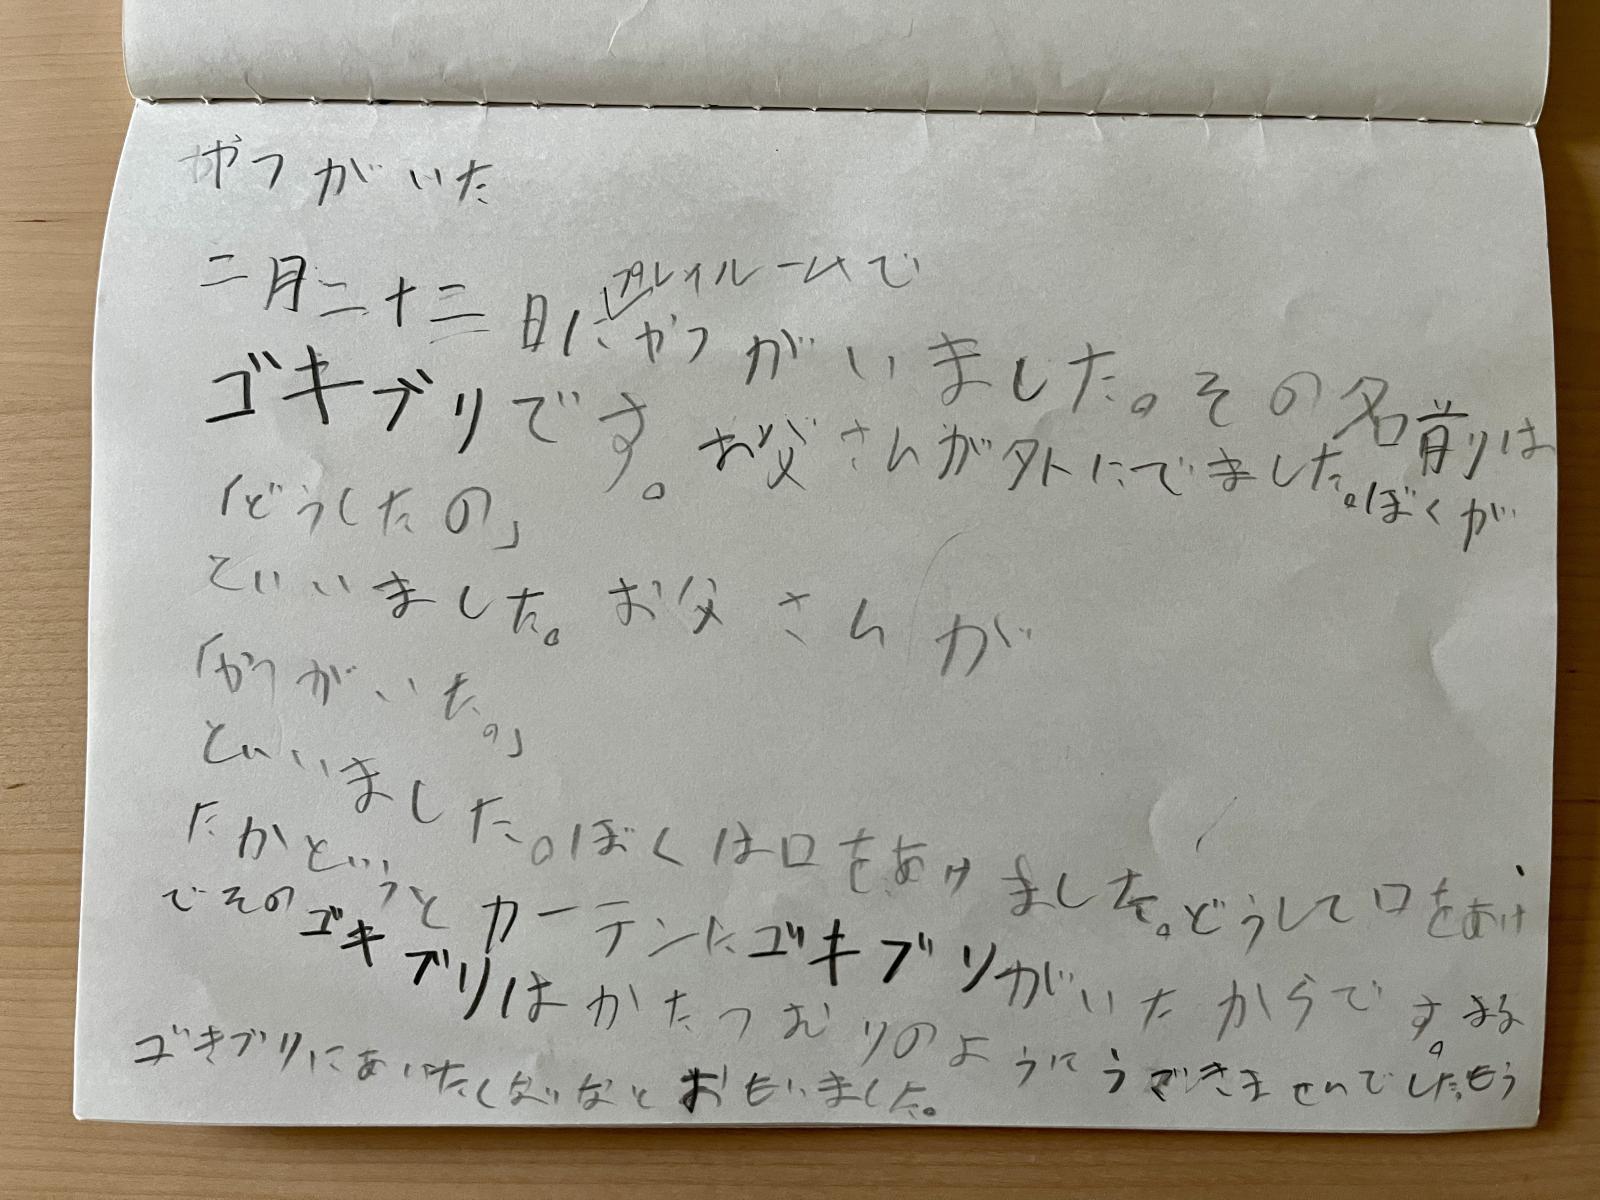 やつがいた
二月二十三日にプレイルームでやつがいました。その名前は
ゴキブリです。お父さんが外にでました。ぼくが
「どうしたの」
といいました。お父さんが
「やつがいた。」
といいました。ぼくは口をあけました。どうして口をあけ
たかというとカーテンにゴキブリがいたからです。まる
でそのゴキブリはかたつむりのようにうごきませんでした。もう
ゴキブリにあいたくないなとおもいました。